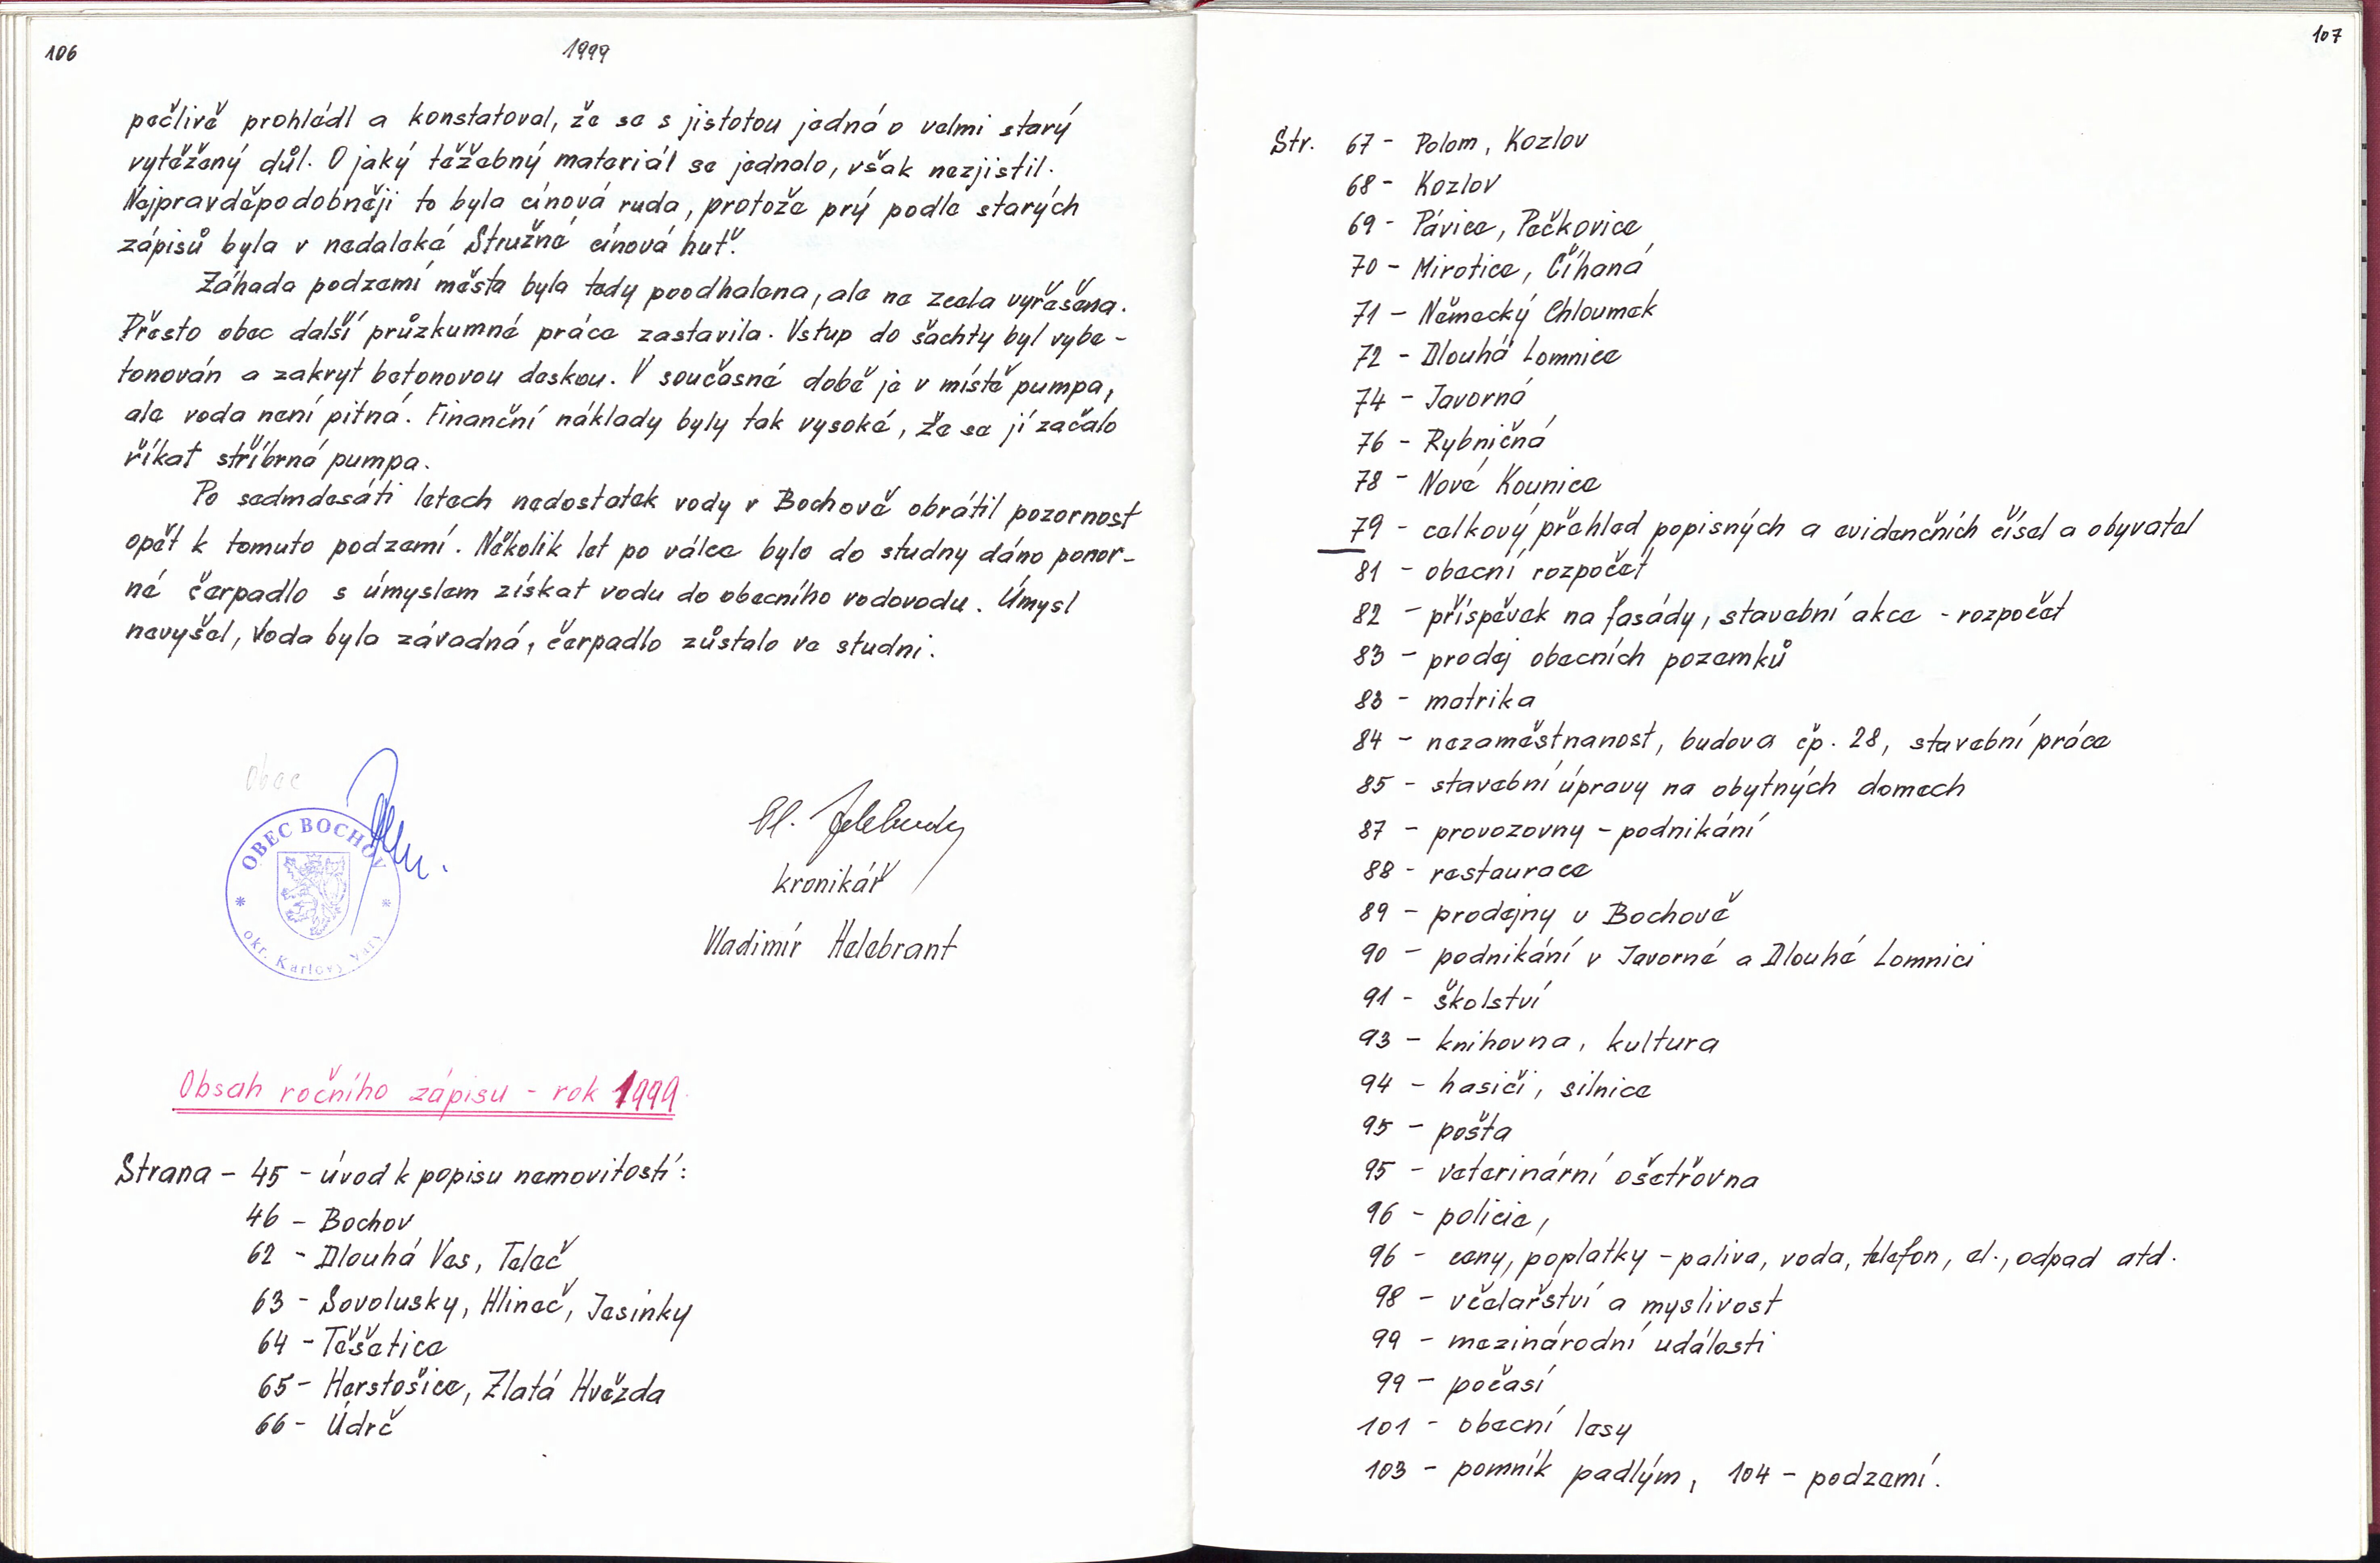 106
1999
pečlivě prohlédl a konstatoval, že se s jistotou jedná o velmi starý
vytěžený důl. O jaký těžebný materiál se jednalo, však nezjistil.
Nejpravděpodobněji to byla cínová ruda, protože prý podle starých
zápisů byla v nedaleké Stružné cínová huť.
Záhada podzemí města byla tedy poodhalena, ale ne zcela vyřešena.
Přesto obec další průzkumné práce zastavila. Vstup do šachty byl vybe-
tonován a zakryt betonovou deskou. V současné době je v místě pumpa,
ale voda není pitná. Finanční náklady byly tak vysoké, že se jí začalo
říkat stříbrná pumpa.
Po sedmdesáti letech nedostatek vody v Bochově obrátil pozornost
opět k tomuto podzemí. Několik let po válce bylo do studny dáno ponor-
né čerpadlo s úmyslem získat vodu do obecního vodovodu. Úmysl
nevyšel, Voda byla závadná, čerpadlo zůstalo ve studni.
Obec
OBEC BOCHOV
okr. Karlovy Vary
Vl.
kronikář
Vladimír Helebrant
Obsah ročního zápisu - rok 1999.
Strana - 45 - úvod k popisu nemovitostí:
46 - Bochov
62 - Dlouhá Ves, Teleč
63 - Sovolusky, Hlineč, Jesínky
64 - Těšetice
65 - Herstošice, Zlatá Hvězda
66 - Údrč
107
Str. 67 - Polom, Kozlov
68 - Kozlov
69 - Pávice, Pečkovice
70 - Mirotice, Číhaná
71 - Německý Chloumek
72 - Dlouhá Lomnice
74 - Javorná
76 - Rybničná
78 - Nové Kounice
79 - celkový přehled popisných a evidenčních čísel a obyvatel
81 - obecní rozpočet
82 - příspěvek na fasády, stavební akce - rozpočet
83 - prodej obecních pozemků
83 - matrika
84 - nezaměstnanost, budova čp. 28, stavební práce
85 - stavební úpravy na obytných domech
87 - provozovny - podnikání
88 - restaurace
89 - prodejny v Bochově
90 - podnikání v Javorné a Dlouhé Lomnici
91 - školství
93 - knihovna, kultura
94 - hasiči, silnice
95 - pošta
95 - veterinární ošetřovna
96 - policie,
96 - ceny, poplatky - paliva, voda, telefon, el., odpad atd.
98 - včelařství a myslivost
99 - mezinárodní události
99 - počasí
101 - obecní lesy
103 - pomník padlým, 104 - podzemí.